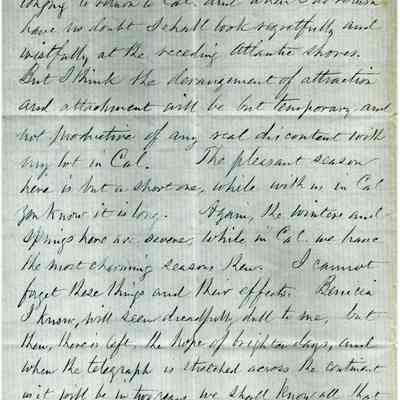 longing to return to Cal. and when I do return
have no doubt I shall look regretfully and
wistfully at the receding Atlantic shores.
But I think the derangement of attraction
and attachment will be but temporary and
not productive of any real discontent with
my lot in Cal. The pleasant season
here is but a short one, while with us in Cal
you know it is long. Again, the winters and
springs here are severe, while in Cal. we have
the most charming seasons then. I cannot
forget these things and their effects. Benicia
I know, will seem dreadfully dull to me, but
then, there is left the hope of brighter days, and
when the telegraph is stretched across the continent
as it will be in two years we shall know all that